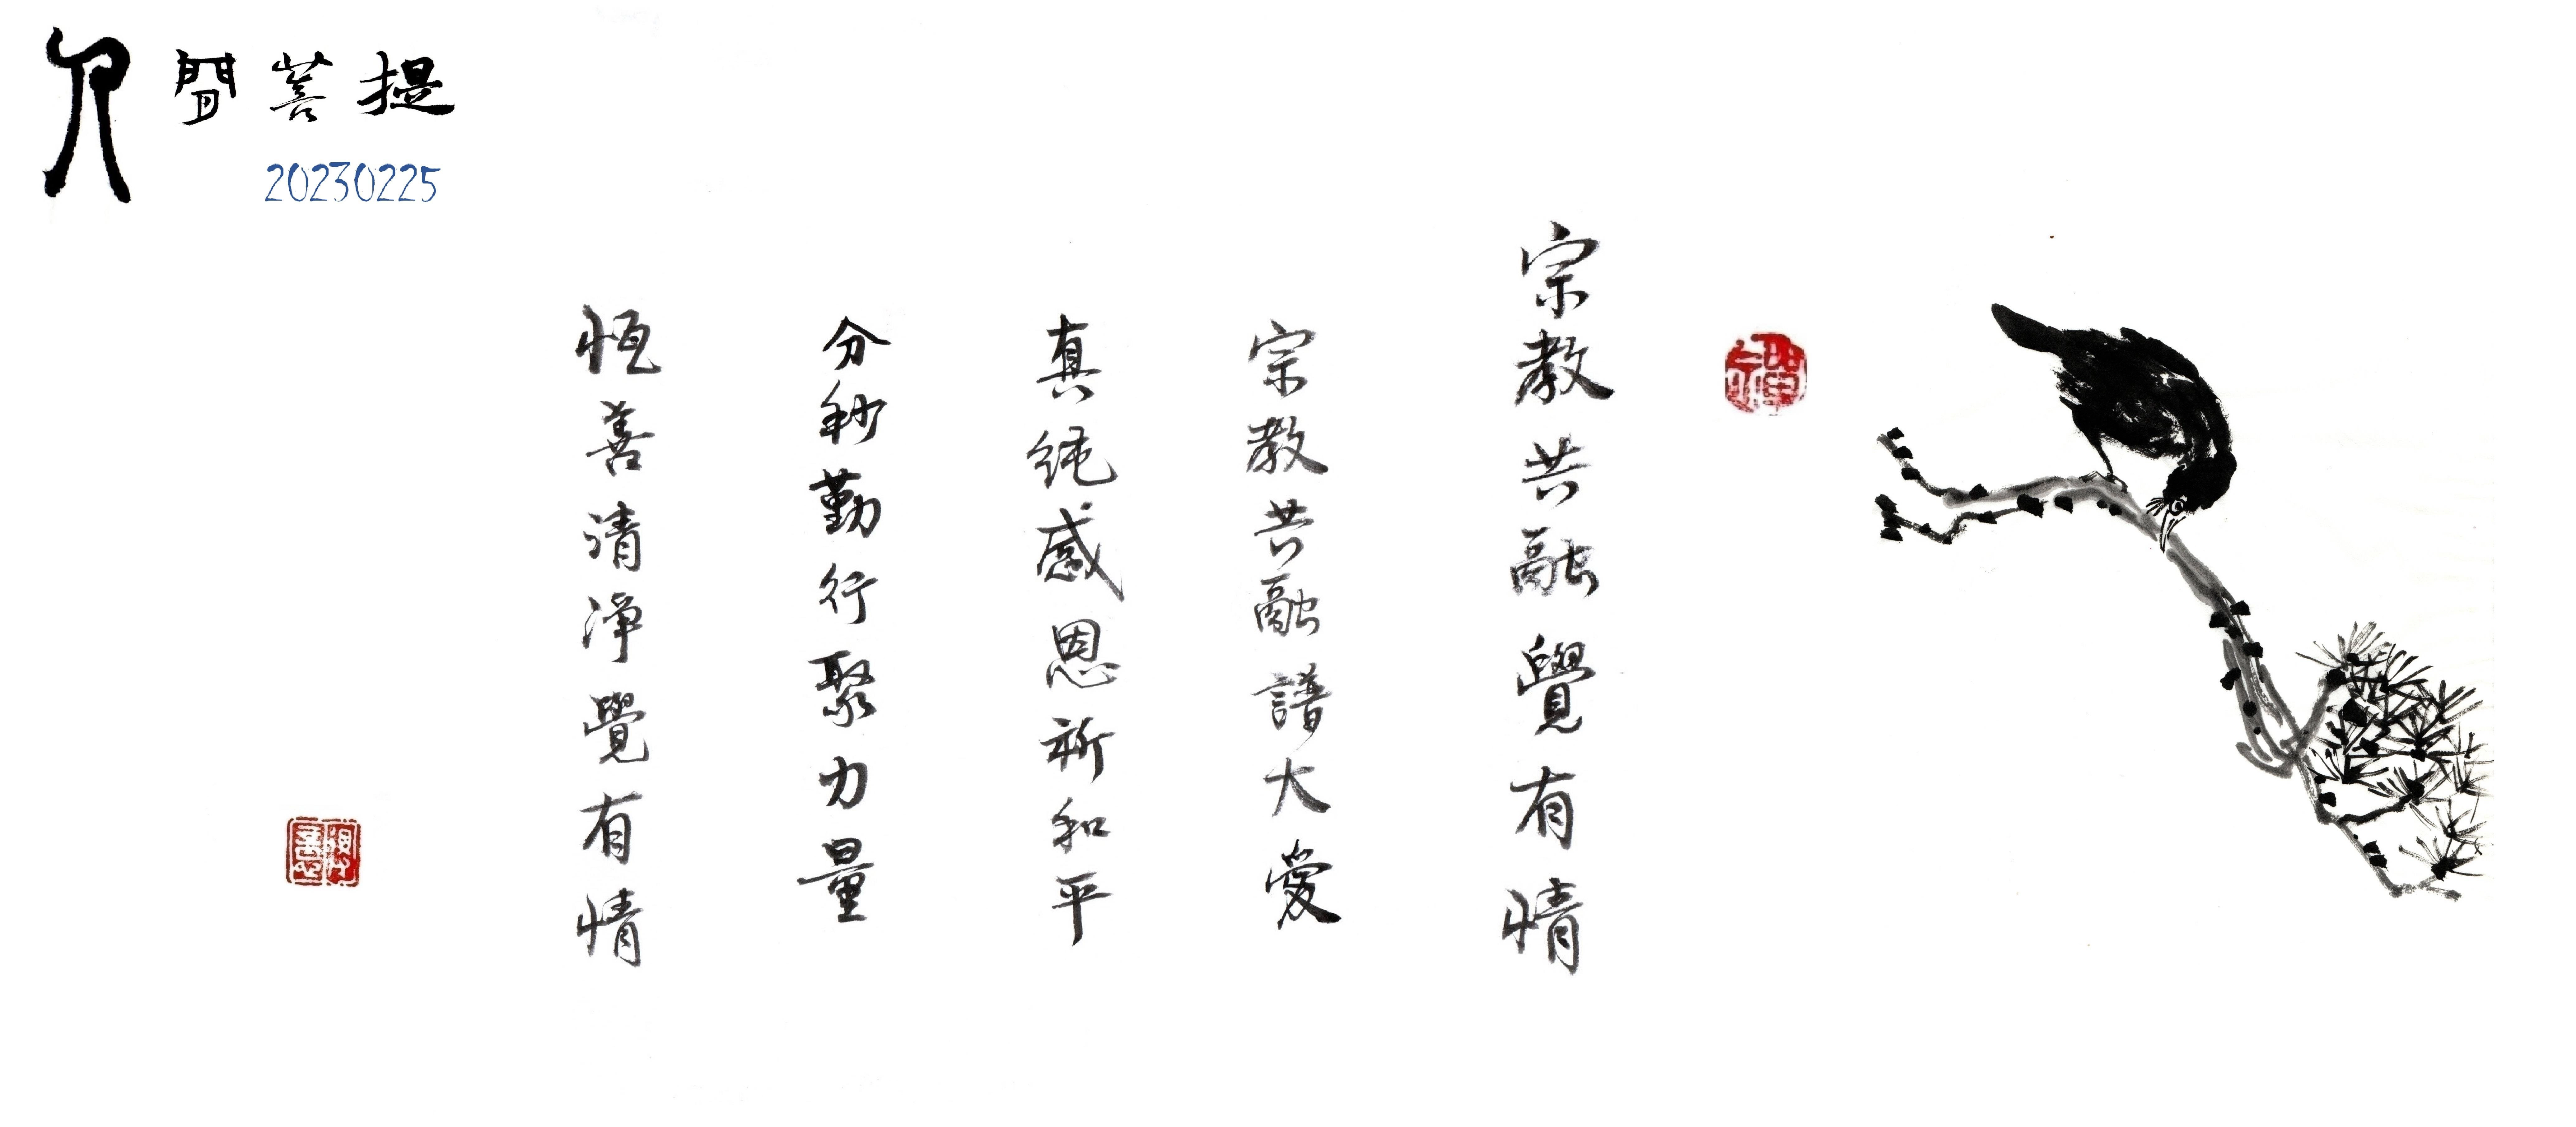 人間菩提
20230225
宗教共融覺有情
宗教共融譜大愛
真純感恩祈和平
分秒勤行聚力量
恆善清淨覺有情